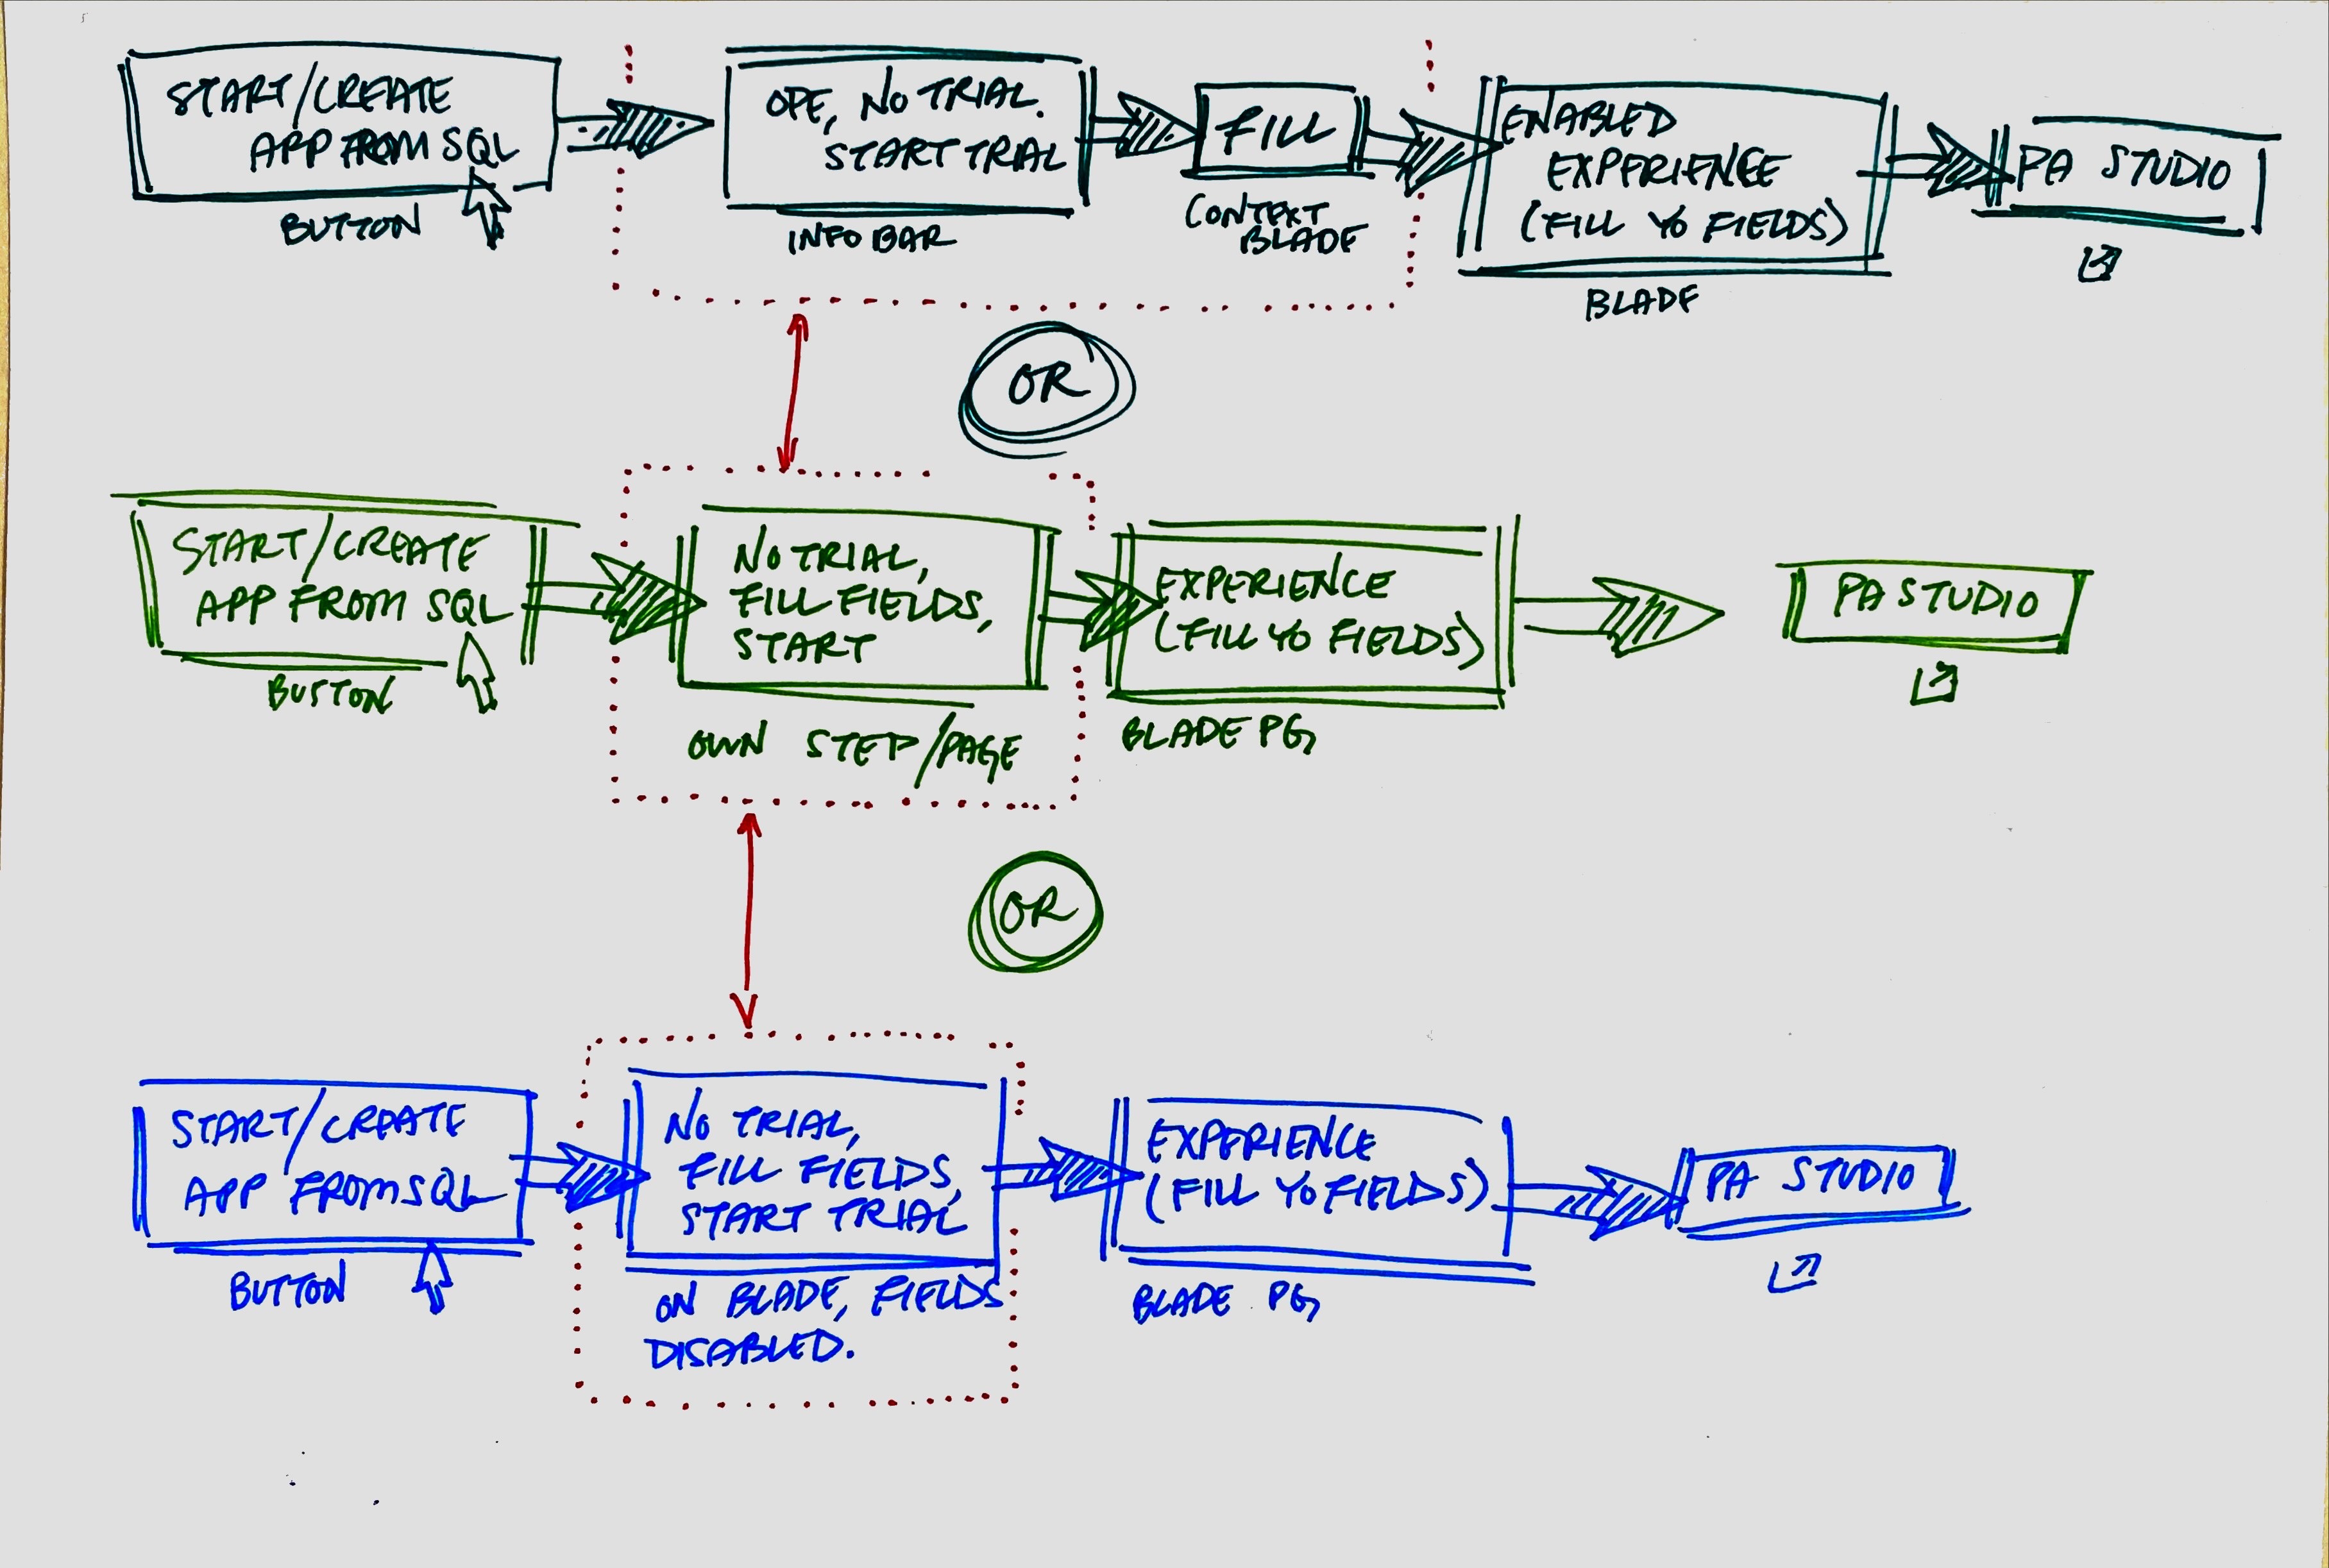 START/CREATE
APP FROM SQL
BUTTON
OPE, NO TRIAL.
START TRIAL
INFO BAR
FILL
CONTEXT
BLADE
ENABLED
EXPERIENCE
(FILL YO FIELDS)
BLADE
PA STUDIO
OR
START/CREATE
APP FROM SQL
BUTTON
NO TRIAL,
FILL FIELDS,
START
OWN STEP/PAGE
EXPERIENCE
(FILL YO FIELDS)
BLADE PG
PA STUDIO
OR
START/CREATE
APP FROM SQL
BUTTON
NO TRIAL,
FILL FIELDS,
START TRIAL
ON BLADE, FIELDS
DISABLED.
EXPERIENCE
(FILL YO FIELDS)
BLADE PG
PA STUDIO